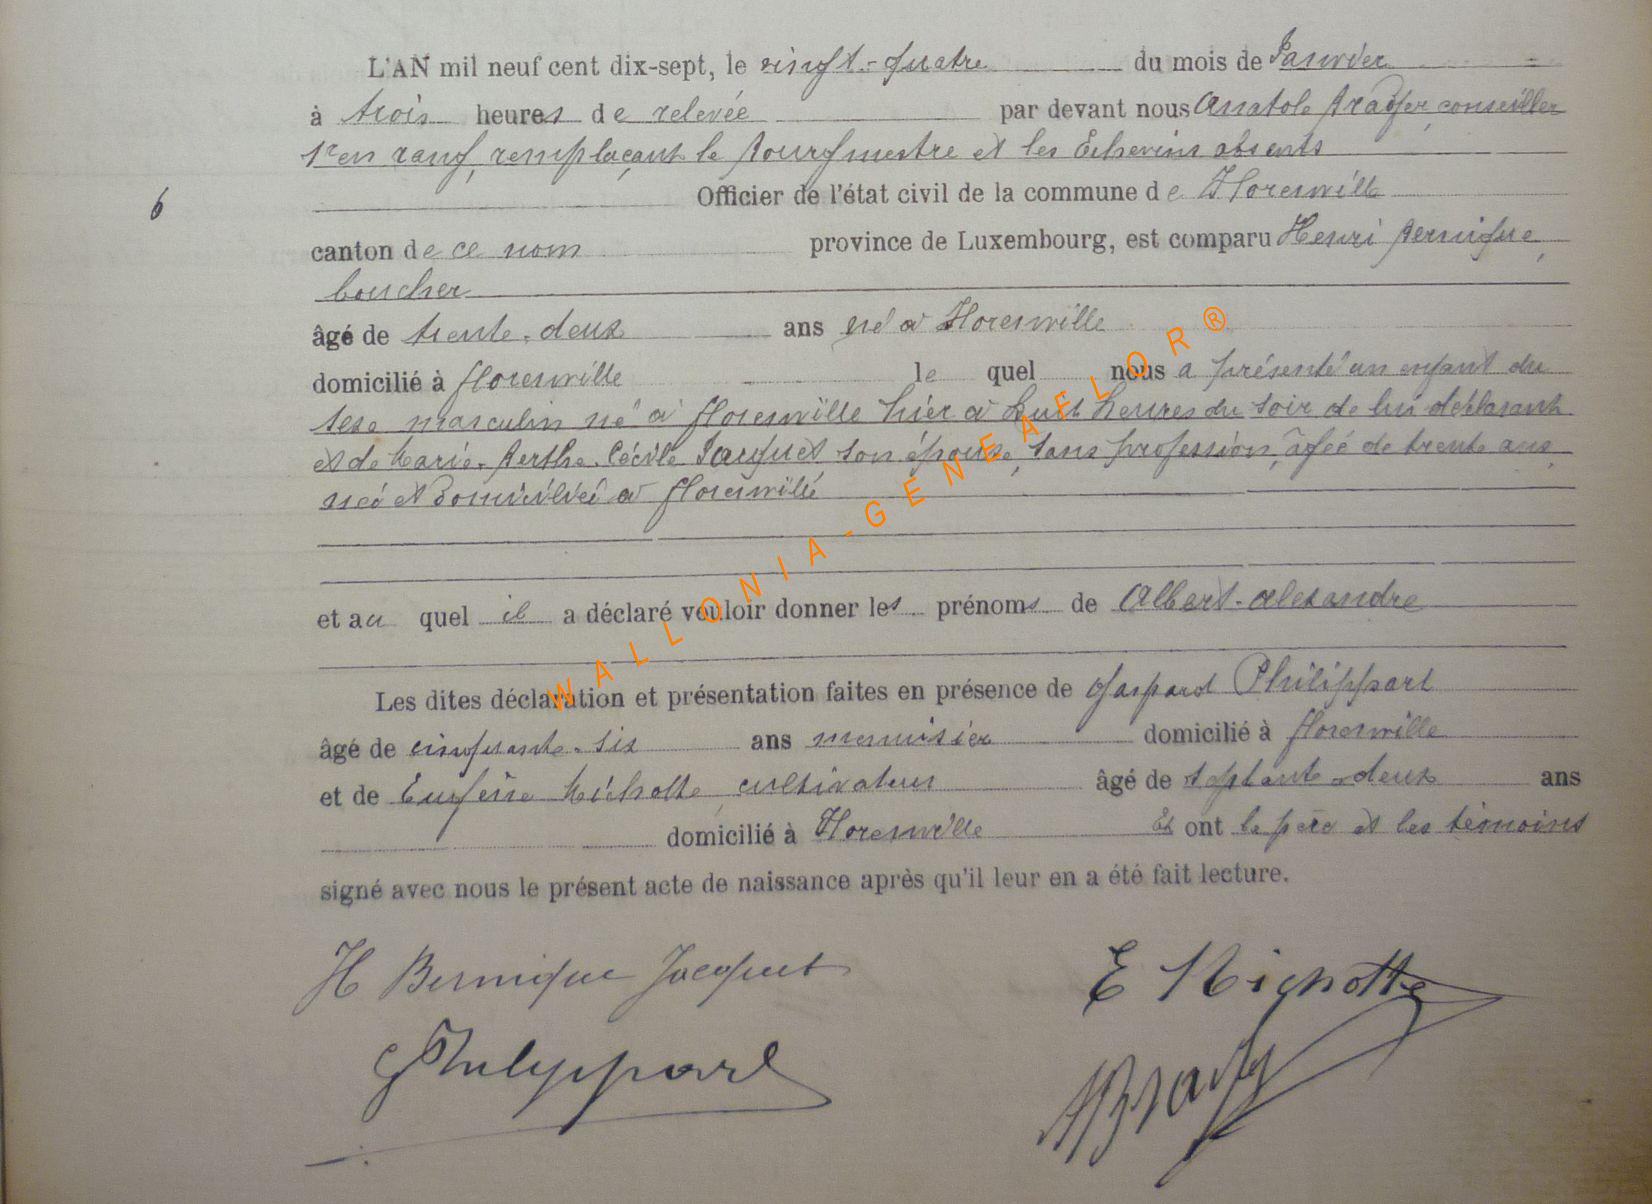 L'AN mil neuf cent dix-sept, le vingt-quatre du mois de Janvier
à trois heures de relevée par devant nous Anatole conseiller
1er en rang, remplaçant le Bourgmestre et les Echevins absents
6 Officier de l'état civil de la commune de Florenville
canton de ce nom province de Luxembourg, est comparu Henri Bernique,
boucher
âgé de trente-deux ans né à Florenville
domicilié à Florenville le quel nous a présenté un enfant du
sexe masculin né à Florenville hier à huit heures du soir de lui déclarant
et de Marie-Berthe-Cécile Jacquet son épouse, sans profession, âgée de trente ans,
née et domiciliée à Florenville
et au quel il a déclaré vouloir donner les prénoms de Albert-Alexandre
Les dites déclaration et présentation faites en présence de Gaspard Philippart
âgé de cinquante-six ans menuisier domicilié à Florenville
et de Eugène Michotte, cultivateur âgé de septante-deux ans
domicilié à Florenville Et ont le père et les témoins
signé avec nous le présent acte de naissance après qu'il leur en a été fait lecture.
H Bernique Jacquet E Michotte
G Philippart
WALLONIA-GENEAELOR®